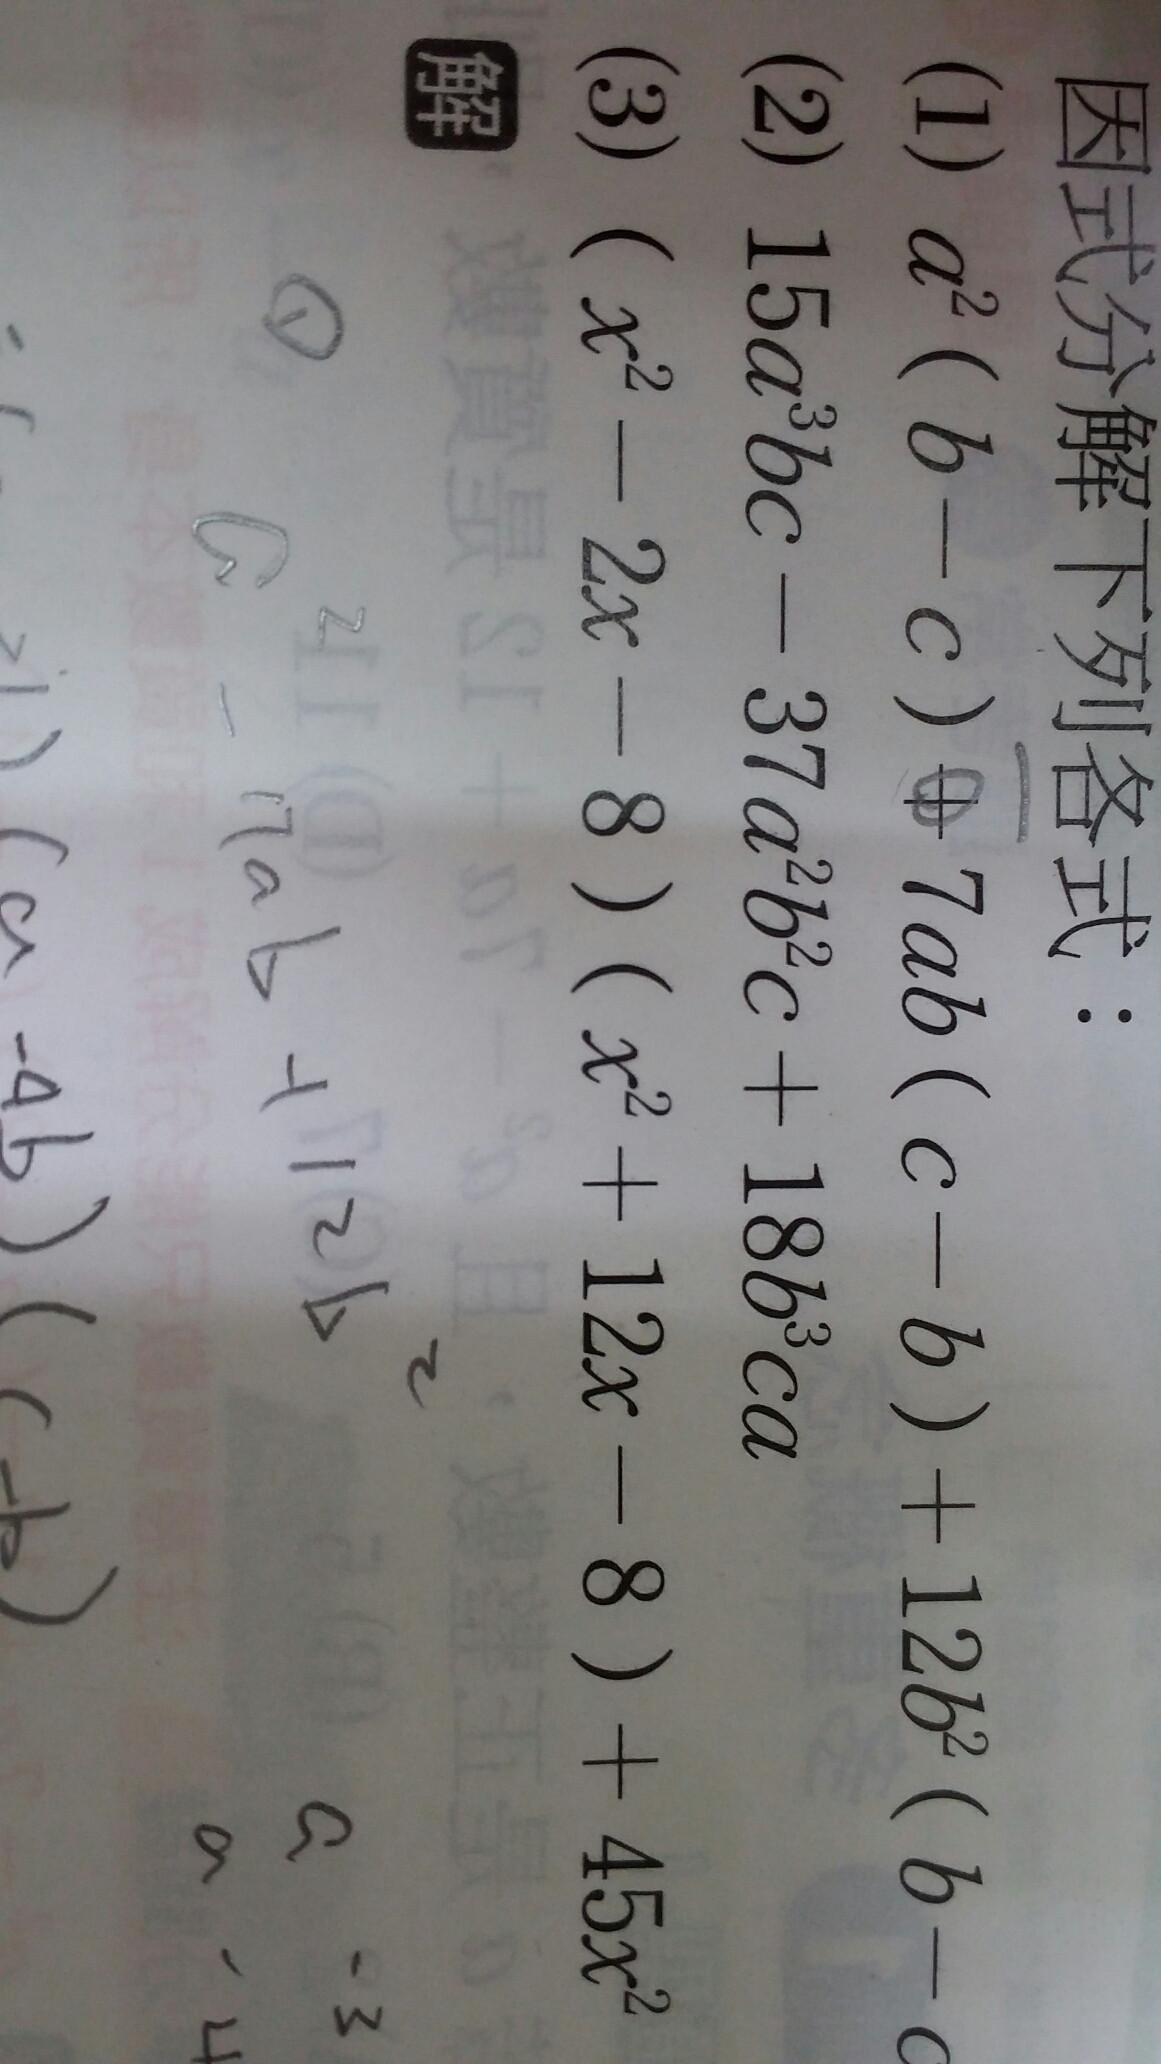 因式分解下列各式：
(1) a²(b－c)＋7ab(c－b)＋12b²(b－c
(2) 15a³bc－37a²b²c＋18b³ca
(3) (x²－2x－8)(x²＋12x－8)＋45x²
解
①
a²－7ab＋12b²
a －3
a －4
(a－4b)(